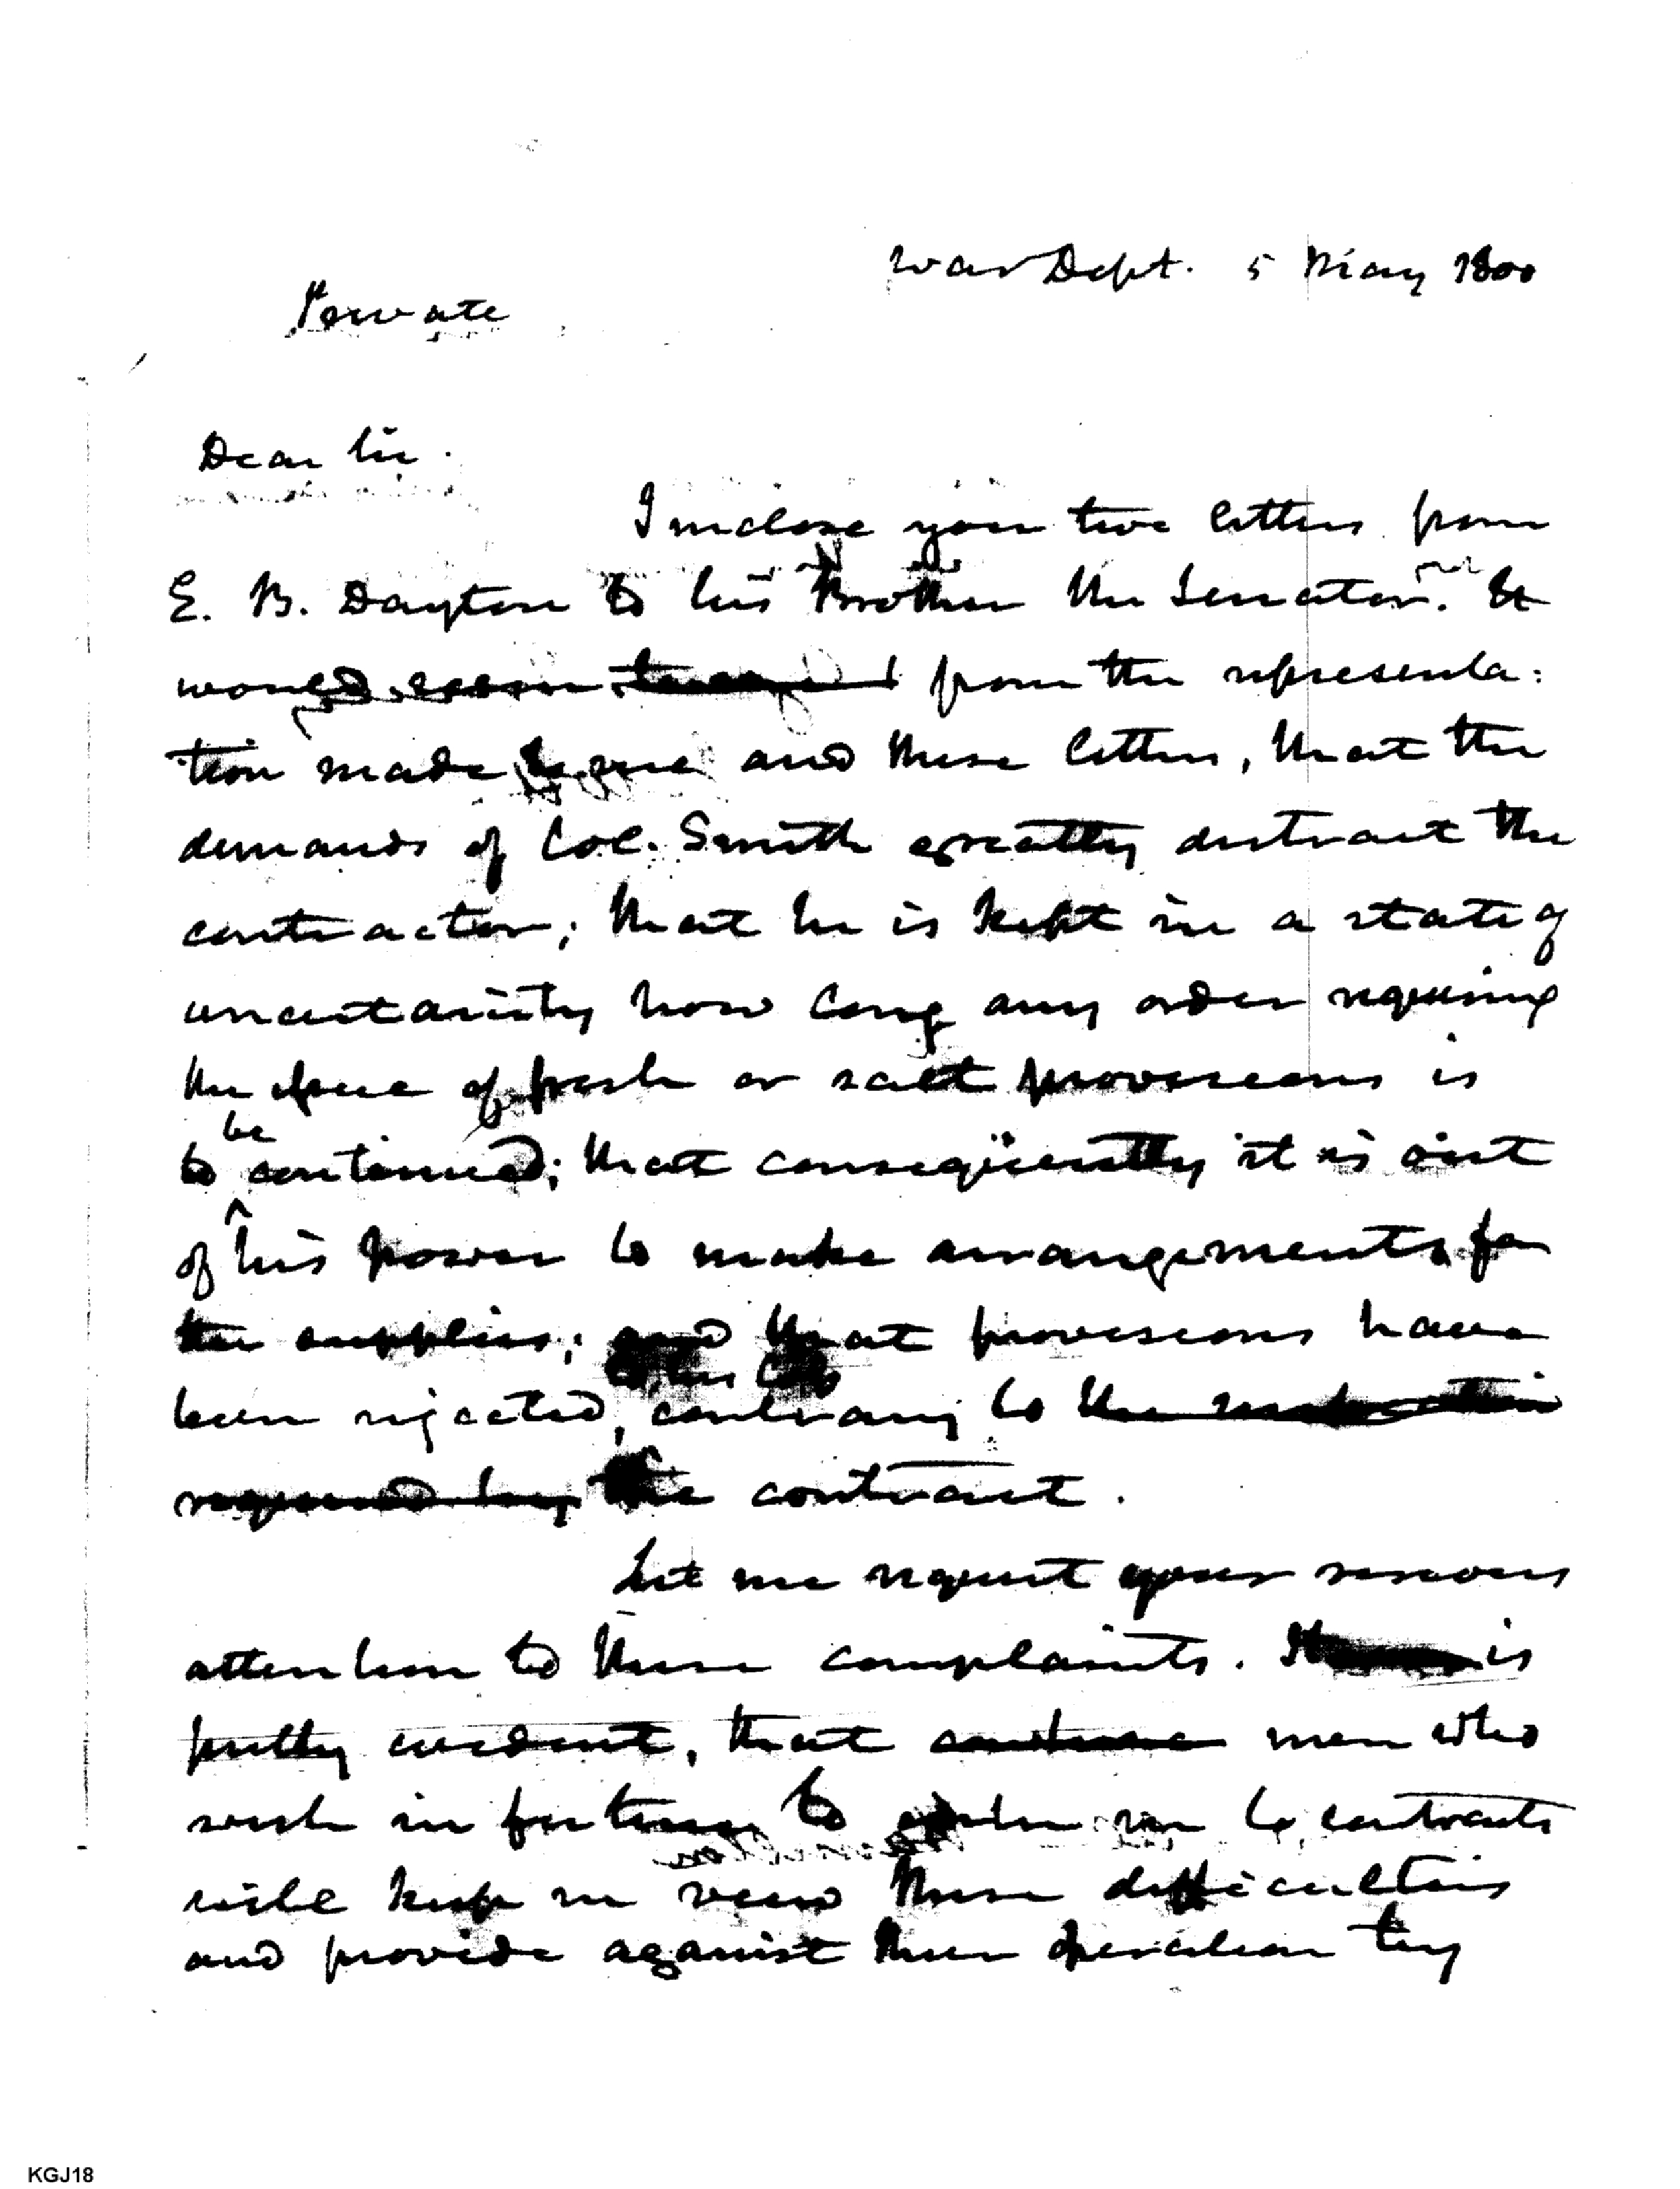 War Dept. 5 May 1800
Private
Dear Sir.
I inclose you two letters from
E. B. Dayton to his Brother the Senator. It
would seem from the representa:
tion made to me and these letters, that the
demands of Col. Smith greatly distract the
contractor; that he is kept in a state of
uncertainty how long any order requiring
the issue of fresh or salt provisions is
be
to continued; that consequently it is out
of his power to make arrangements for
the supplies; and that provisions have
been rejected, contrary to the
required by the contract.
Let me request your serious
attention to these complaints. It is
pretty evident, that men who
wish in future to enter into contracts
will keep in view these difficulties
and provide against their operation by
KGJ18